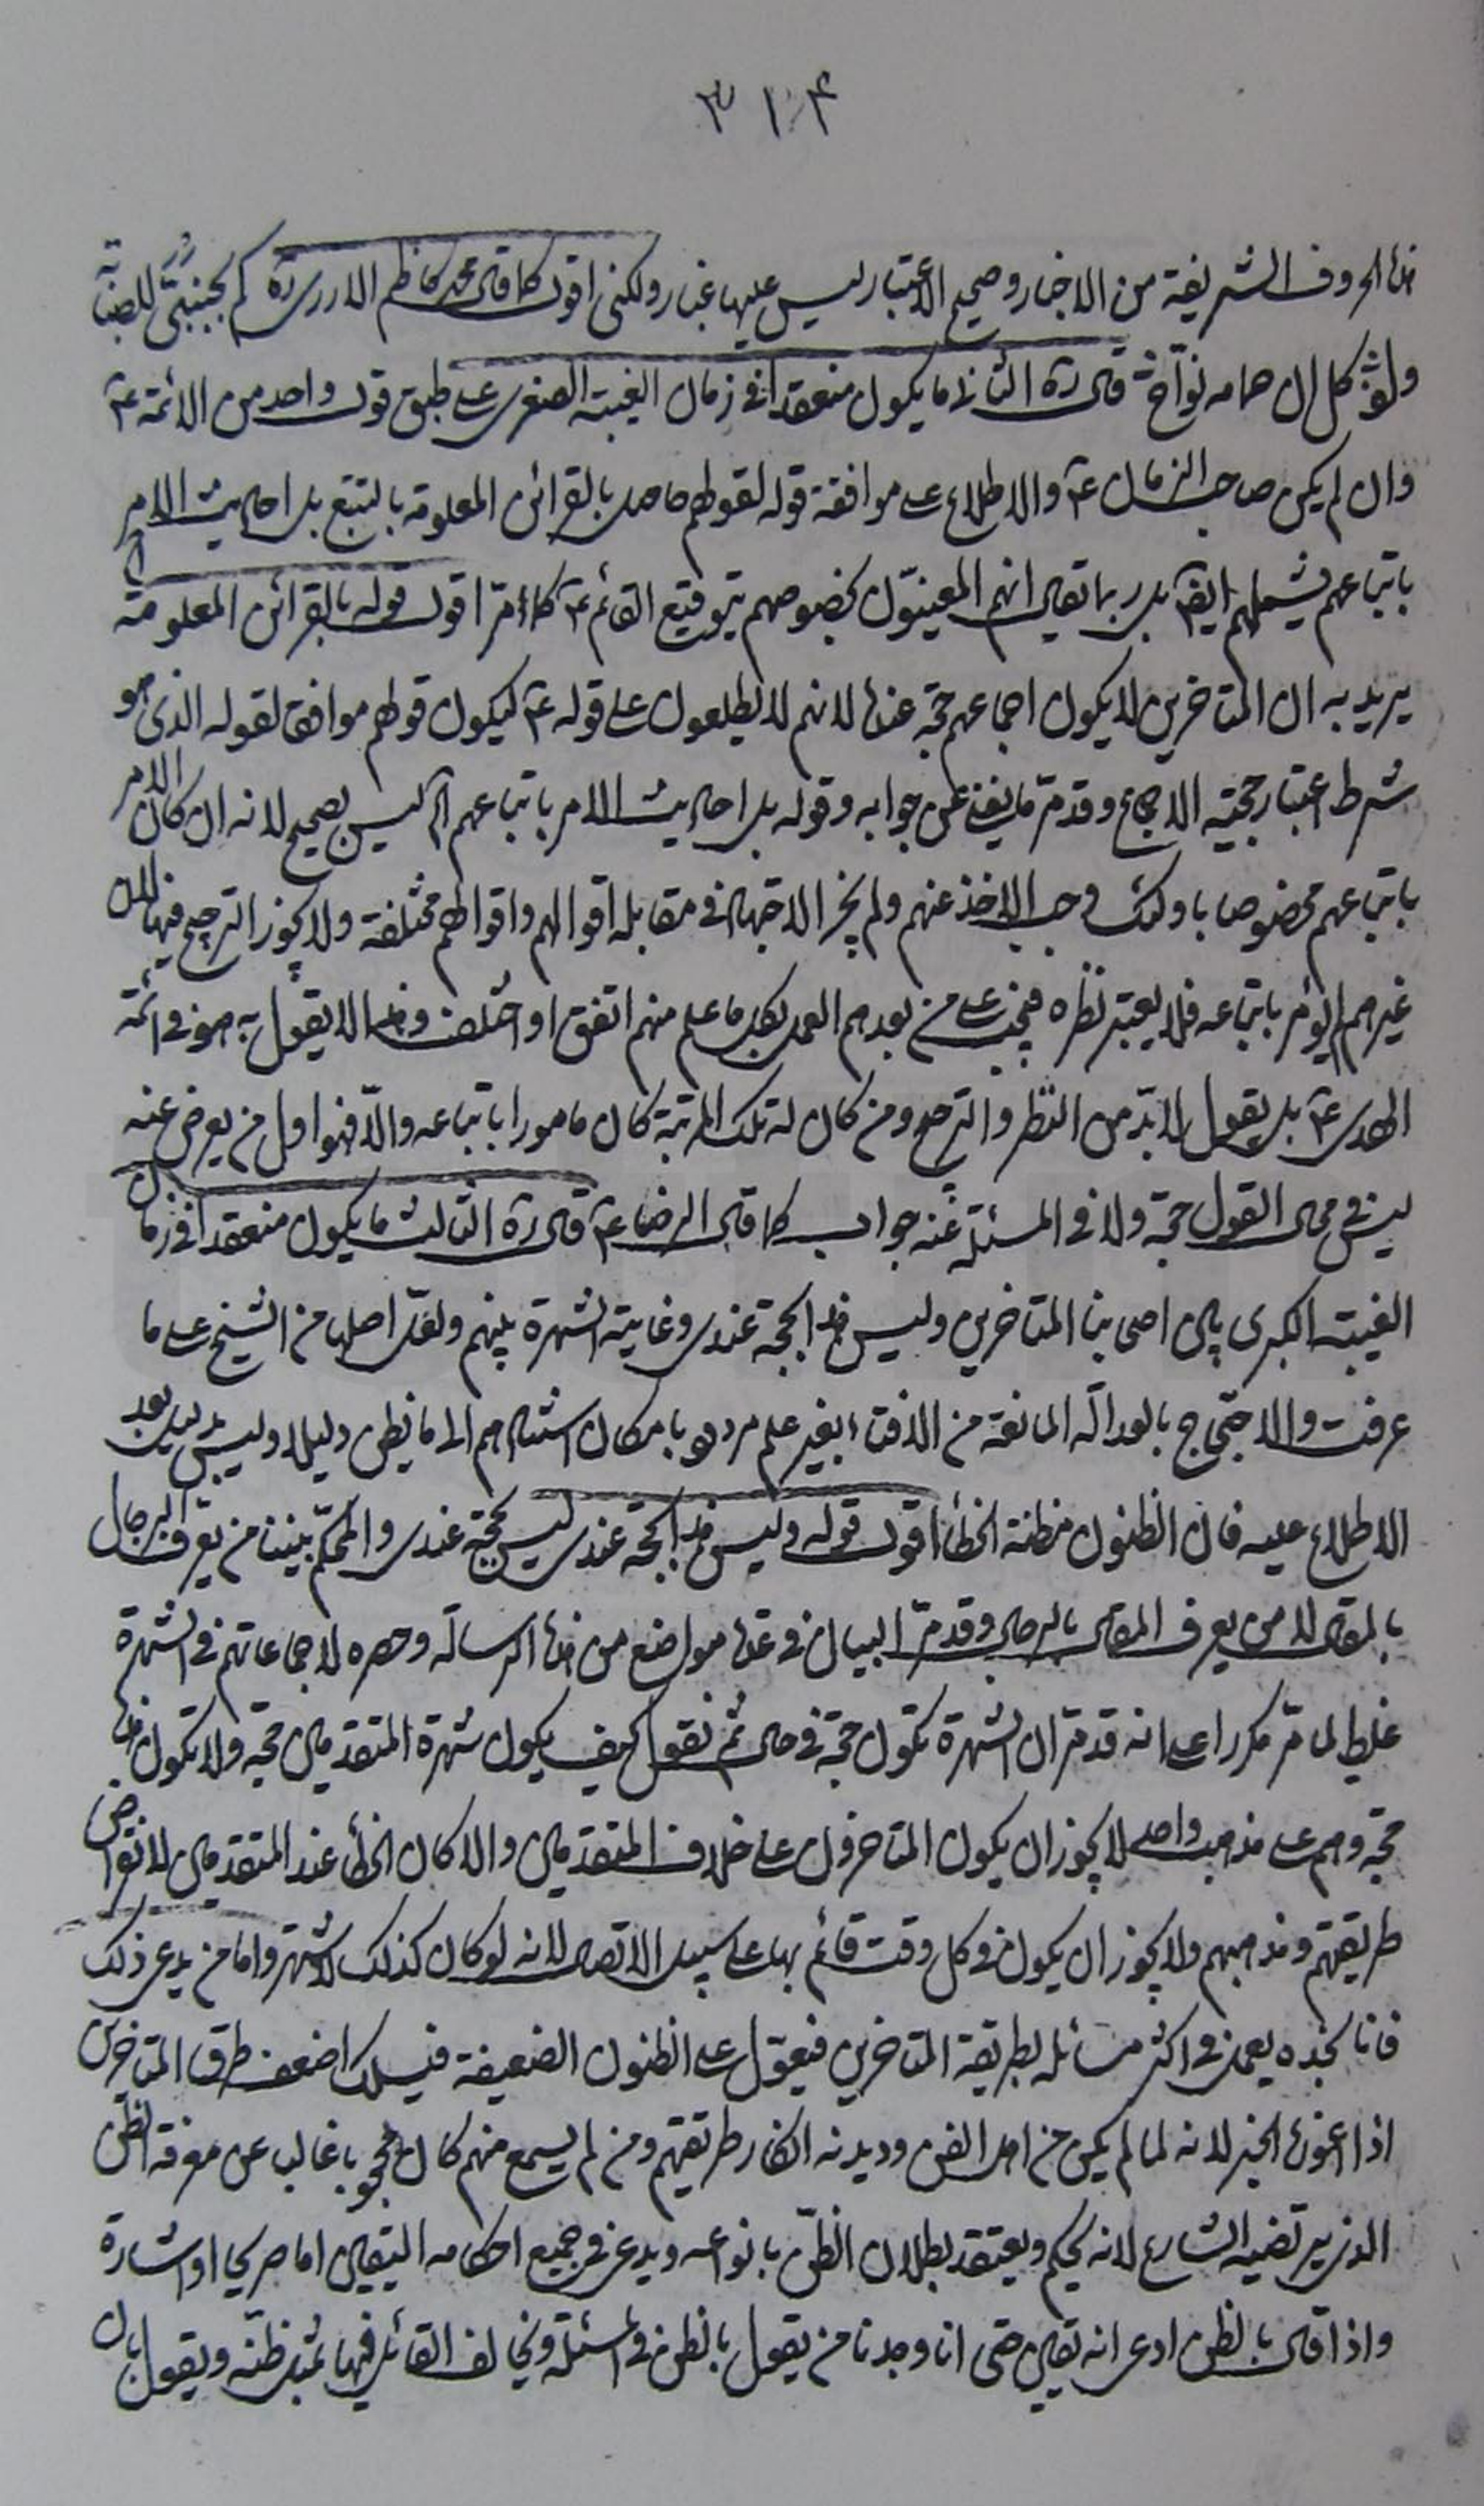 ٣١٤
هذه الحروف الشريفة من الاخبار وصحيح الاعتبار ليس عليها غبار ولكني اقول كما قال محمد كاظم الازري ره كم بجنبيّ للصبابة
ولو كل ان حمامه نوّاحة قال ره الثاني ما يكون منعقدا في زمان الغيبة الصغرى على طبق قول واحد من الائمة ع
وان لم يكن صاحب الزمان ع والاطلاع على موافقة قوله لقولهم حاصل بالقرائن المعلومة بالتتبع بل احاديث الامر
باتباعهم يشملهم ايضا بل ربما يقال انهم المعينون بخصوصهم بتوقيع القائم ع كما مرّ اقول قوله بالقرائن المعلومة
يريد به ان المتاخرين لا يكون اجماعهم حجة عنده لانهم لا يطلعون على قوله ع ليكون قولهم موافق لقوله الذي هو
شرط اعتبار حجية الاجماع وقد مرّ ما يغني عن جوابه وقوله بل احاديث الامر باتباعهم الخ ليس بصحيح لانه ان كان الامر
باتباعهم مخصوصا باولئك وجب الاخذ عنهم ولم يجز الاجتهاد في مقابله اقوالهم واقوالهم مختلفة ولا يجوز الترجيح فيها لان
غيرهم لم يؤمر باتباعه فلا يعتبر نظره فيجب على من بعدهم العمل بكل ما علم منهم اتفق او اختلف وهذا لا يقول به هو في ائمة
الهدى ع بل يقول لابدّ من النظر والترجيح ومن كان له تلك المرتبة كان مامورا باتباعه والّا فهو اول من يعرض عنه
ليس في محال القول حجة ولا في المسئلة عنه جواب كما قال الرضا ع قال ره الثالث ما يكون منعقدا في زمان
الغيبة الكبرى بين اصحابنا المتاخرين وليس هذا بحجة عندي وغايته الشهرة بينهم ولعل اصلها من الشيخ على ما
عرفت والاحتجاج بالعدالة المانعة من الافتاء بغير علم مردود بامكان استنادهم الى ما يظن دليلا وليس بدليل بعد
الاطلاع عليه فان الظنون مظنة الخطأ اقول قوله وليس هذا بحجة عندي ليس بحجة عندي والمحكّم بيننا من يعرف الرجال
بالمقال لا من يعرف المقال بالرجال وقد مرّ البيان في عدة مواضع من هذه الرسالة وحصره لاجماعاتهم في الشهرة
غليط لما مرّ مكررا على انه قد مرّ ان الشهرة تكون حجة في حال ثم نقول كيف يكون شهرة المتقدمين حجة ولا تكون هذه
حجة وهم على مذهب واحد لا يجوز ان يكون المتاخرون على خلاف المتقدمين والا كان الخطأ عند المتقدمين لانقراض
طريقتهم ومذهبهم ولا يجوز ان يكون في كل وقت قائم بها على سبيل الاتصال لانه لو كان كذلك لاشتهر واما من يدعي ذلك
فانا نجده يعمل في اكثر مسائله بطريقة المتاخرين فيعوّل على الظنون الضعيفة فيسلك اضعف طرق المتاخرين
اذا اعوزه الخبر لانه لما لم يكن من اهل الفن وديدنه انكار طريقتهم ومن لم يسمع منهم كان محجوبا غالبا عن معرفة الظن
الذي يرتضيه الشارع لانه يحكم ويعتقد بطلان الظنّ بانواعه ويدعي في جميع احكامه اليقين اما صريحا او اشارة
واذا قال بالظن ادعى انه يقين حتى انا وجدنا من يقول بالظن في مسئلة ويخالف القائل فيها بمثل ظنّه ويقول بان